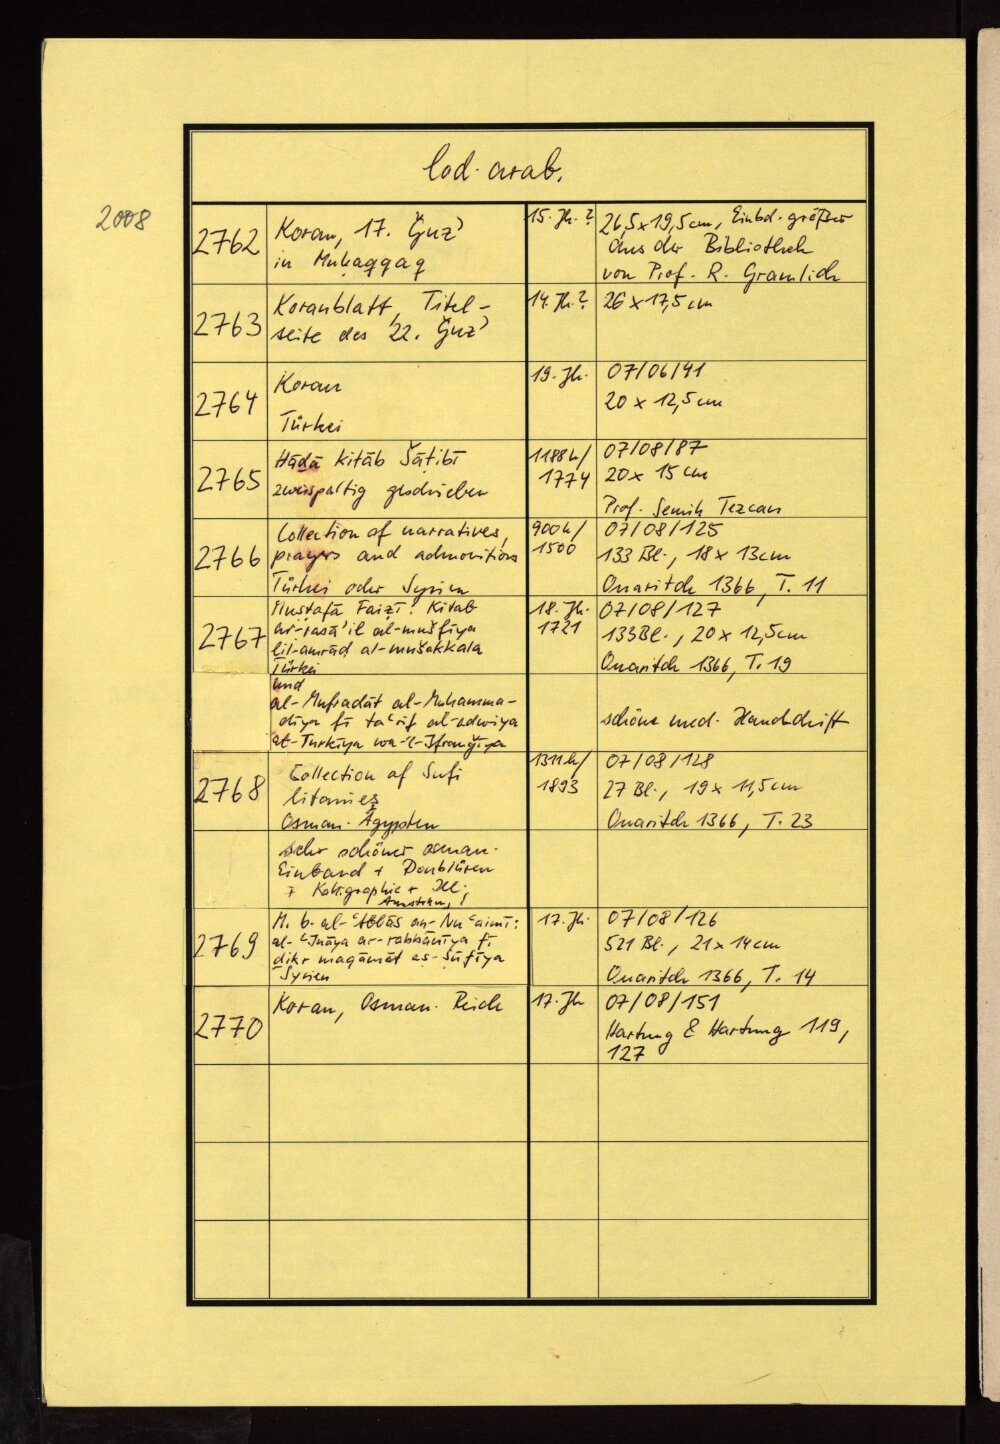 Cod. arab.
2008
2762
Koran, 17. Ǧuz'
in Muḥaqqaq
15. Jh.?
26,5 x 19,5 cm, Einbd. größer
Aus der Bibliothek
von Prof. R. Gramlich
2763
Koranblatt, Titel-
seite des 22. Ǧuz'
14. Jh.?
26 x 17,5 cm
2764
Koran
Türkei
19. Jh.
07/06/41
20 x 12,5 cm
2765
Hāḏā kitāb Šāṭibī
zweispaltig geschrieben
1188h/
1774
07/08/87
20 x 15 cm
Prof. Semih Tezcan
2766
Collection of narratives,
prayers and admonitions
Türkei oder Syrien
900h/
1500
07/08/125
133 Bl., 18 x 13 cm
Quaritch 1366, T. 11
2767
Muṣṭafā Faiẓī: Kitab
ar-rasā'il al-mušfīya
lil-amrāḍ al-mušakkala
Türkei
18. Jh.
1721
07/08/127
133 Bl., 20 x 12,5 cm
Quaritch 1366, T. 19
und
al-Mufradāt al-Muhamma-
dīya fī ta'rīf al-adwiya
at-Turkīya wa-'l-Ifranǧīya
schöne med. Handschrift
2768
Collection of Sufi
litanies
Osman. Ägypten
1311h/
1893
07/08/128
27 Bl., 19 x 11,5 cm
Quaritch 1366, T. 23
sehr schöner osman.
Einband + Doublüren
+ Kalligraphie + Ill.,
2769
M. b. al-'Abbās an-Nu'aimī:
al-'Ināya ar-rabbānīya fī
ḏikr maqāmāt aṣ-Ṣūfīya
Syrien
17. Jh.
07/08/126
521 Bl., 21 x 14 cm
Quaritch 1366, T. 14
2770
Koran, Osman. Reich
17. Jh
07/08/151
Hartung & Hartung 119,
127